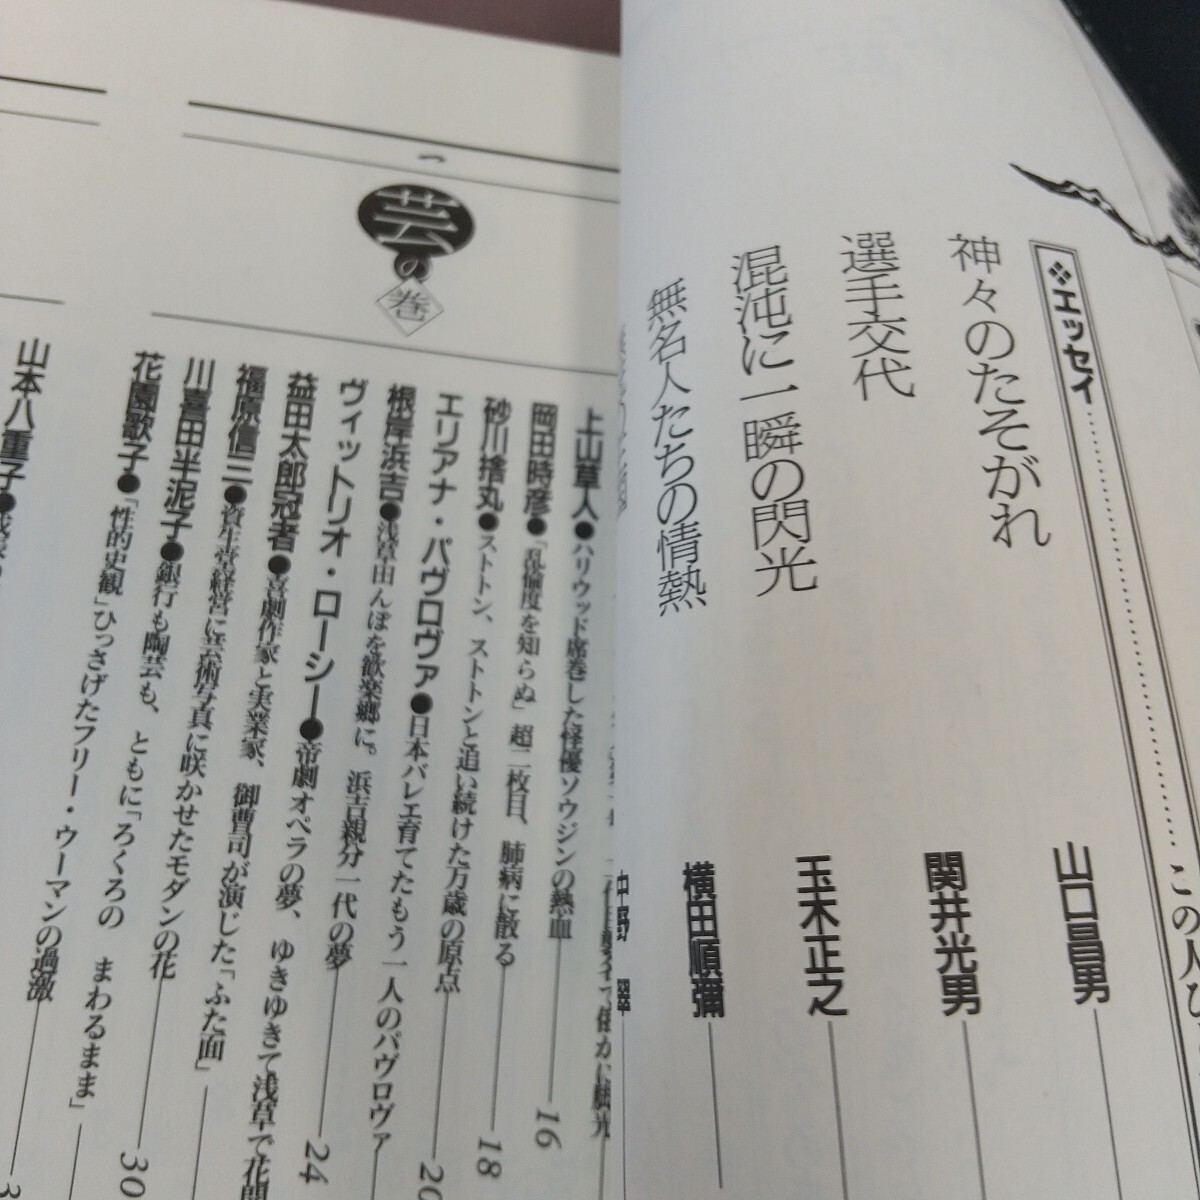 ❖エッセイ
この人
神々のたそがれ
山口昌男
選手交代
関井光男
混沌に一瞬の閃光
玉木正之
無名人たちの情熱
横田順彌
中野翠
一
芸の巻
上山草人●ハリウッド席巻した怪優ソウジンの熱血
岡田時彦●「乱倫度を知らぬ」超二枚目、肺病に散る 16
砂川捨丸●ストトン、ストトンと追い続けた万歳の原点 18
エリアナ・パヴロヴァ●日本バレエ育てたもう一人のパヴロヴァ 20
根岸浜吉●浅草田んぼを歓楽郷に。浜吉親分一代の夢
ヴィットリオ・ローシー●帝劇オペラの夢、ゆきゆきて浅草で花開
益田太郎冠者●喜劇作家と実業家、御曹司が演じた「ふた面」 24
福原信三●資生堂経営に芸術写真に咲かせたモダンの花
川喜田半泥子●銀行も陶芸も、ともに「ろくろの まわるまま」
花園歌子●「性的史観」ひっさげたフリー・ウーマンの過激 30
山本八重子●